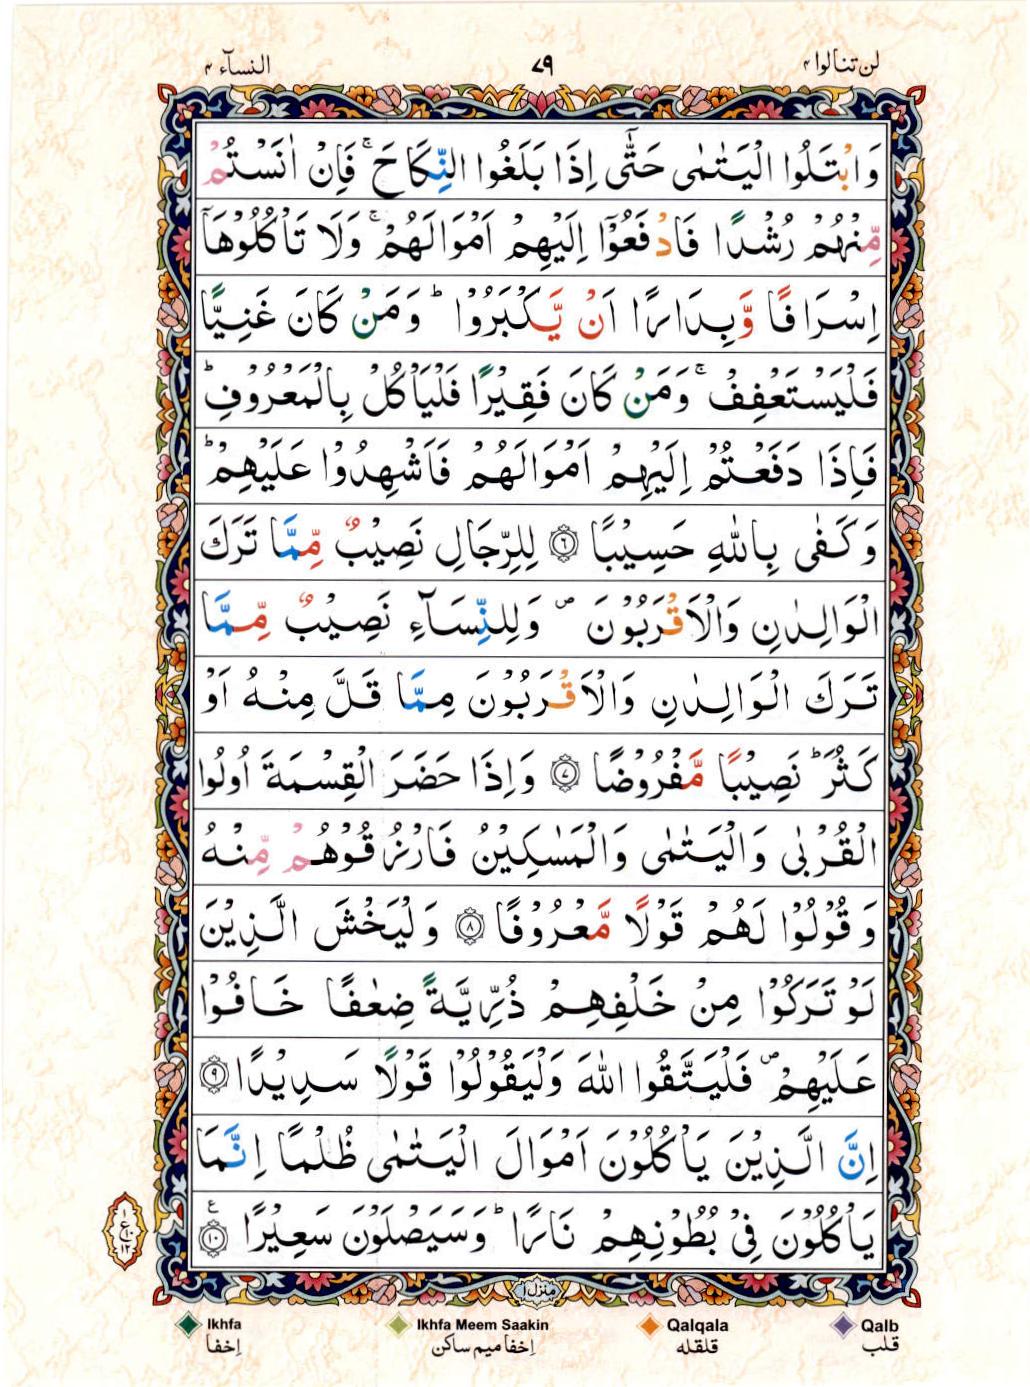 لن تنالوا ۴
۷۹
النسآء ۴
وَابْتَلُوا الْيَتٰمٰى حَتّٰٓى اِذَا بَلَغُوا النِّكَاحَ ۚ فَاِنْ اٰنَسْتُمْ
مِّنْهُمْ رُشْدًا فَادْفَعُوْٓا اِلَيْهِمْ اَمْوَالَهُمْ ۚ وَلَا تَاْكُلُوْهَآ
اِسْرَافًا وَّبِدَارًا اَنْ يَّكْبَرُوْا ؕ وَمَنْ كَانَ غَنِيًّا
فَلْيَسْتَعْفِفْ ۚ وَمَنْ كَانَ فَقِيْرًا فَلْيَاْكُلْ بِالْمَعْرُوْفِ ؕ
فَاِذَا دَفَعْتُمْ اِلَيْهِمْ اَمْوَالَهُمْ فَاَشْهِدُوْا عَلَيْهِمْ ؕ
وَكَفٰى بِاللّٰهِ حَسِيْبًا ۝۶ لِلرِّجَالِ نَصِيْبٌ مِّمَّا تَرَكَ
الْوَالِدٰنِ وَالْاَقْرَبُوْنَ ۪ وَلِلنِّسَآءِ نَصِيْبٌ مِّمَّا
تَرَكَ الْوَالِدٰنِ وَالْاَقْرَبُوْنَ مِمَّا قَلَّ مِنْهُ اَوْ
كَثُرَ ؕ نَصِيْبًا مَّفْرُوْضًا ۝۷ وَاِذَا حَضَرَ الْقِسْمَةَ اُولُوا
الْقُرْبٰى وَالْيَتٰمٰى وَالْمَسٰكِيْنُ فَارْزُقُوْهُمْ مِّنْهُ
وَقُوْلُوْا لَهُمْ قَوْلًا مَّعْرُوْفًا ۝۸ وَلْيَخْشَ الَّذِيْنَ
لَوْ تَرَكُوْا مِنْ خَلْفِهِمْ ذُرِّيَّةً ضِعٰفًا خَافُوْا
عَلَيْهِمْ ۪ فَلْيَتَّقُوا اللّٰهَ وَلْيَقُوْلُوْا قَوْلًا سَدِيْدًا ۝۹
اِنَّ الَّذِيْنَ يَاْكُلُوْنَ اَمْوَالَ الْيَتٰمٰى ظُلْمًا اِنَّمَا
يَاْكُلُوْنَ فِيْ بُطُوْنِهِمْ نَارًا ؕ وَسَيَصْلَوْنَ سَعِيْرًا ۝۱۰ ع
۱
ع ۱۰
۱۲
منزل ۱
Ikhfa
Ikhfa Meem Saakin
Qalqala
Qalb
اِخفا
اِخفا میم ساکن
قلقله
قلب